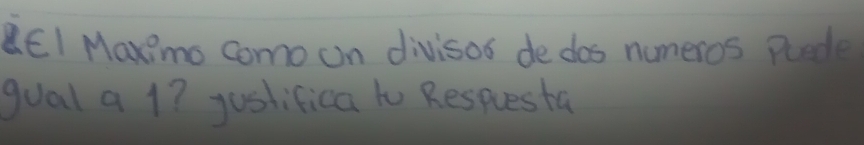 ¿El Maximo como un divisor de dos numeros puede
gual a 1? justifica tu Respuesta